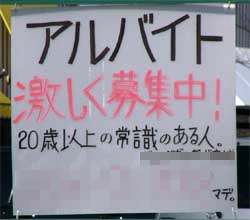 アルバイト
激しく募集中!
20歳以上の常識のある人。
マデ。